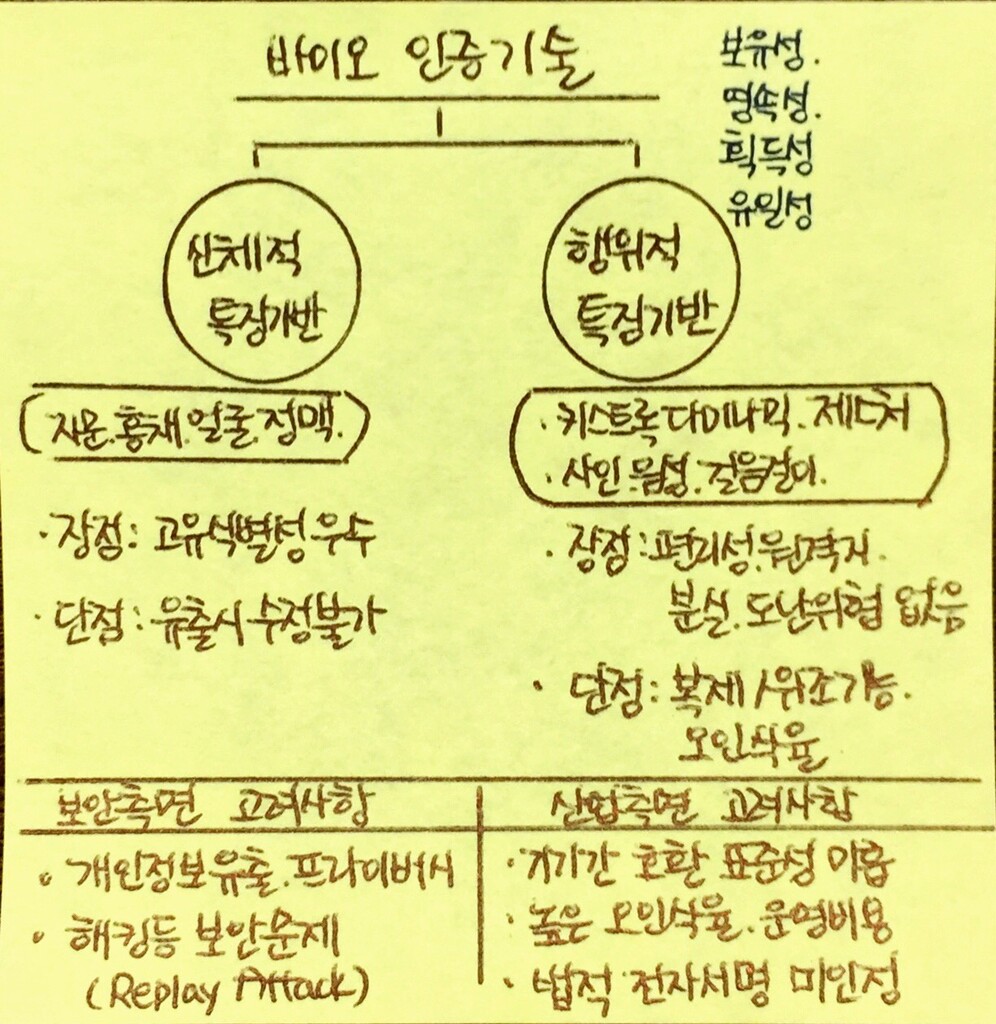 바이오 인증기술
보유성.
영속성.
획득성
유일성
신체적
특징기반
행위적
특징기반
지문.홍채.얼굴.정맥.
· 키스트록 다이나믹. 제스처
· 사인.음성.걸음걸이.
· 장점: 고유식별성 우수
· 단점: 유출시 수정불가
· 장점: 편리성.원격지.
분실.도난위협 없음
· 단점: 복제/위조가능.
오인식율
보안측면 고려사항
· 개인정보유출.프라이버시
· 해킹등 보안문제
(Replay Attack)
산업측면 고려사항
· 기기간 호환 표준성 미흡
· 높은 오인식율.운영비용
· 법적 전자서명 미인정